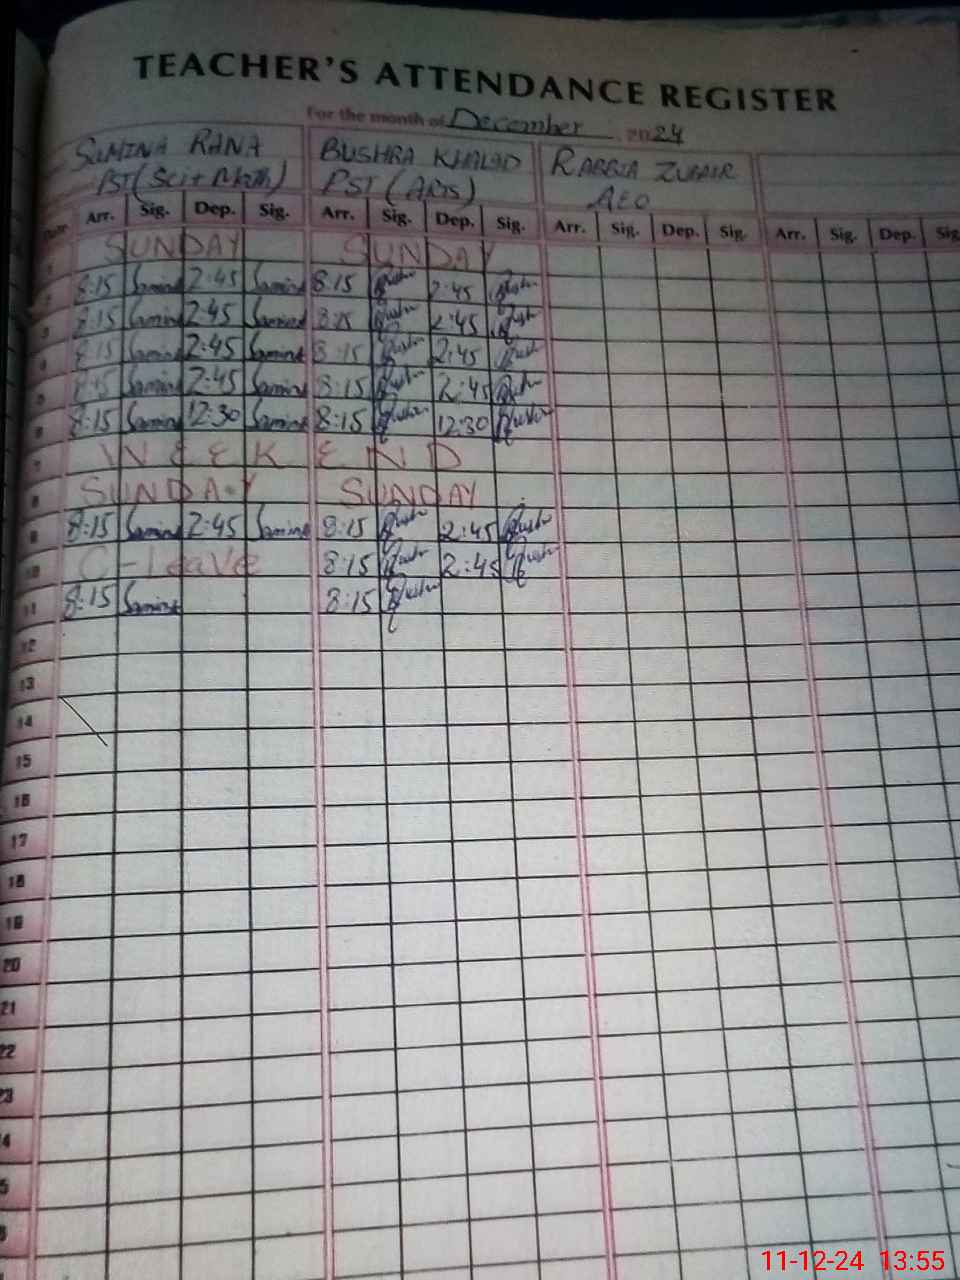 TEACHER'S ATTENDANCE REGISTER
For the month of December 2024
SAMINA RANA BUSHRA KHALID RABBIA ZUBAIR
PST (Sci+Math) PST (ARTS) AEO
Date Arr. Sig. Dep. Sig. Arr. Sig. Dep. Sig. Arr. Sig. Dep. Sig. Arr. Sig. Dep. Sig
1 SUNDAY SUNDAY
2 8:15 Samina 2:45 Samina 8:15 Bushr 2:45 Bushr
3 8:15 Samina 2:45 Samina 8:15 Bushr 2:45 Bushr
4 8:15 Samina 2:45 Samina 8:15 Bushr 2:45 Bushr
5 8:15 Samina 2:45 Samina 8:15 Bushr 2:45 Bushr
6 8:15 Samina 12:30 Samina 8:15 Bushr 12:30 Bushr
7 WEEK END
8 SUNDAY SUNDAY
9 8:15 Samina 2:45 Samina 8:15 Bushr 2:45 Bushr
10 C-Leave 8:15 Bushr 2:45 Bushr
11 8:15 Samina 8:15 Bushr
12
13
14
15
16
17
18
19
20
21
22
23
4
5
6
11-12-24 13:55